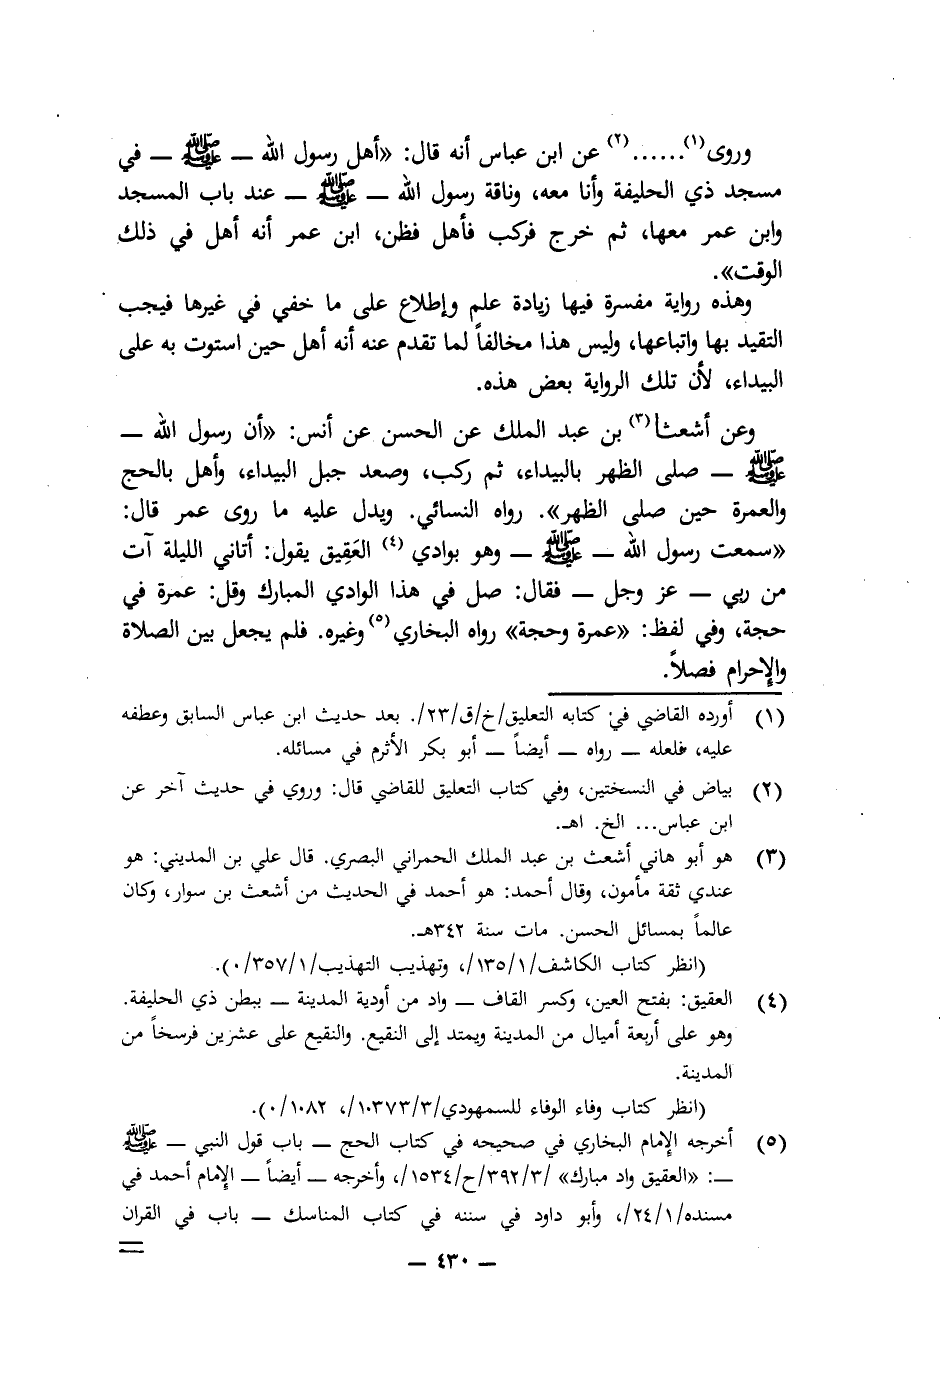 وروى(١)......(٢) عن ابن عباس أنه قال: «أهل رسول الله ــ ﷺ ــ في
مسجد ذي الحليفة وأنا معه، وناقة رسول الله ــ ﷺ ــ عند باب المسجد
وابن عمر معها، ثم خرج فركب فأهل فظن، ابن عمر أنه أهل في ذلك
الوقت».
وهذه رواية مفسرة فيها زيادة علم وإطلاع على ما خفي في غيرها فيجب
التقيد بها واتباعها، وليس هذا مخالفاً لما تقدم عنه أنه أهل حين استوت به على
البيداء، لأن تلك الرواية بعض هذه.
وعن أشعثا(٣) بن عبد الملك عن الحسن عن أنس: «أن رسول الله ــ
ﷺ ــ صلى الظهر بالبيداء، ثم ركب، وصعد جبل البيداء، وأهل بالحج
والعمرة حين صلى الظهر». رواه النسائي. ويدل عليه ما روى عمر قال:
«سمعت رسول الله ــ ﷺ ــ وهو بوادي (٤) العَقِيق يقول: أتاني الليلة آت
من ربي ــ عز وجل ــ فقال: صل في هذا الوادي المبارك وقل: عمرة في
حجة، وفي لفظ: «عمرة وحجة» رواه البخاري(٥) وغيره. فلم يجعل بين الصلاة
والإحرام فصلاً.
(١) أورده القاضي في كتابه التعليق/خ/ق/٢٣/. بعد حديث ابن عباس السابق وعطفه
عليه، فلعله ــ رواه ــ أيضاً ــ أبو بكر الأثرم في مسائله.
(٢) بياض في النسختين، وفي كتاب التعليق للقاضي قال: وروي في حديث آخر عن
ابن عباس... الخ. اهـ.
(٣) هو أبو هاني أشعث بن عبد الملك الحمراني البصري. قال علي بن المديني: هو
عندي ثقة مأمون، وقال أحمد: هو أحمد في الحديث من أشعث بن سوار، وكان
عالماً بمسائل الحسن. مات سنة ٣٤٢هـ.
(انظر كتاب الكاشف/١٣٥/١/، وتهذيب التهذيب/٣٥٧/١/٠).
(٤) العقيق: بفتح العين، وكسر القاف ــ واد من أودية المدينة ــ ببطن ذي الحليفة.
وهو على أربعة أميال من المدينة ويمتد إلى النقيع. والنقيع على عشرين فرسخاً من
المدينة.
(انظر كتاب وفاء الوفاء للسمهودي/١٠٣٧٣/٣/، ١٠٨٢/٠).
(٥) أخرجه الإمام البخاري في صحيحه في كتاب الحج ــ باب قول النبي ــ ﷺ
ــ: «العقيق واد مبارك» /٣٩٢/٣/ح/١٥٣٤/، وأخرجه ــ أيضاً ــ الإمام أحمد في
مسنده/٢٤/١/، وأبو داود في سننه في كتاب المناسك ــ باب في القران
=
ــ ٤٣٠ ــ